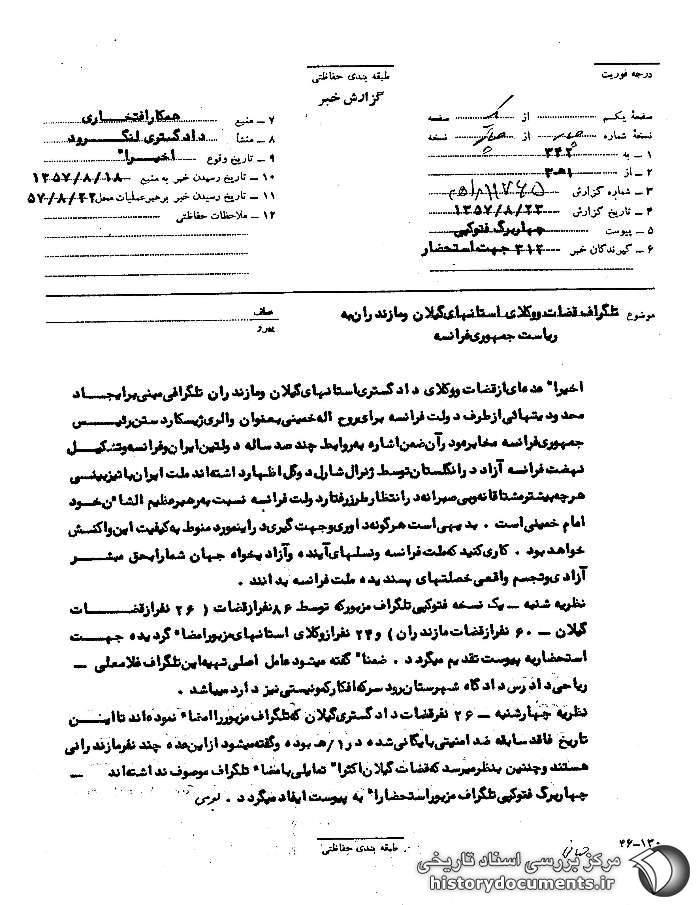 درجه فوریت
طبقه بندی حفاظتی
گزارش خبر
صفحهٔ یکم از صفحه
نسخهٔ شماره از نسخه
۱ ـ به ۳۴۲
۲ ـ از ۳هـ۱
۳ ـ شماره گزارش
۴ ـ تاریخ گزارش ۱۳۵۷/۸/۲۳
۵ ـ پیوست چهاربرگ فتوکپی
۶ ـ گیرندگان خبر ۳۱۲ جهت استحضار
۷ ـ منبع همکار افتخاری
۸ ـ منشأ دادگستری لنگرود
۹ ـ تاریخ وقوع اخیرا"
۱۰ ـ تاریخ رسیدن خبر به منبع ۱۳۵۷/۸/۱۸
۱۱ ـ تاریخ رسیدن خبر برهبر عملیات محل ۵۷/۸/۲۲
۱۲ ـ ملاحظات حفاظتی
موضوع تلگراف قضات ووکلای استانهای گیلان ومازندران به
ریاست جمهوری فرانسه
عطف
پیرو
اخیرا" عده‌ای ازقضات ووکلای دادگستری استانهای گیلان ومازندران تلگرافی مبنی برایجاد
محدودیتهائی ازطرف دولت فرانسه برای روح اله خمینی بعنوان والری ژیسکاردستن رئیس
جمهوری فرانسه مخابره ودرآن ضمن اشاره به روابط چند صد ساله دولتین ایران وفرانسه وتشکیل
نهضت فرانسه آزاد درانگلستان توسط ژنرال شارل دوگل اظهارداشته‌اند ملت ایران با تیزبینی
هرچه بیشترمشتاقانه وبی صبرانه درانتظار طرز رفتار دولت فرانسه نسبت به رهبرعظیم الشا"ن خود
امام خمینی است . بدیهی است هرگونه داوری وجهت گیری دراینمورد منوط به کیفیت این واکنش
خواهد بود . کاری کنید که ملت فرانسه ونسلهای آینده وآزادیخواه جهان شما را بحق مبشر
آزادی وتجسم واقعی خصلتهای پسندیده ملت فرانسه بدانند .
نظریه شنبه ـ یک نسخه فتوکپی تلگراف مزبورکه توسط ۸۶ نفرازقضات ( ۲۶ نفرازقضات
گیلان ـ ۶۰ نفرازقضات مازندران ) و۲۴ نفرازوکلای استانهای مزبورامضا" گردیده جهت
استحضاربه پیوست تقدیم میگردد . ضمنا" گفته میشود عامل اصلی تهیه این تلگراف غلامعلی ـ
ریاحی دادرس دادگاه شهرستان رودسرکه افکارکمونیستی نیز دارد میباشد .
نظریه چهارشنبه ـ ۲۶ نفرقضات دادگستری گیلان که تلگراف مزبوررا امضا" نموده‌اند تا این
تاریخ فاقد سابقه ضد امنیتی بایگانی شده در۱/هـ بوده وگفته میشود ازاین عده چند نفرمازندرانی
هستند وچنین بنظرمیرسد که قضات گیلان اکثرا" تمایلی بامضا" تلگراف موصوف نداشته‌اند ـ
چهاربرگ فتوکپی تلگراف مزبوراستحضارا" به پیوست ایفاد میگردد .
طبقه بندی حفاظتی
۴۶-۱۳۰
مرکز بررسی اسناد تاریخی
historydocuments.ir